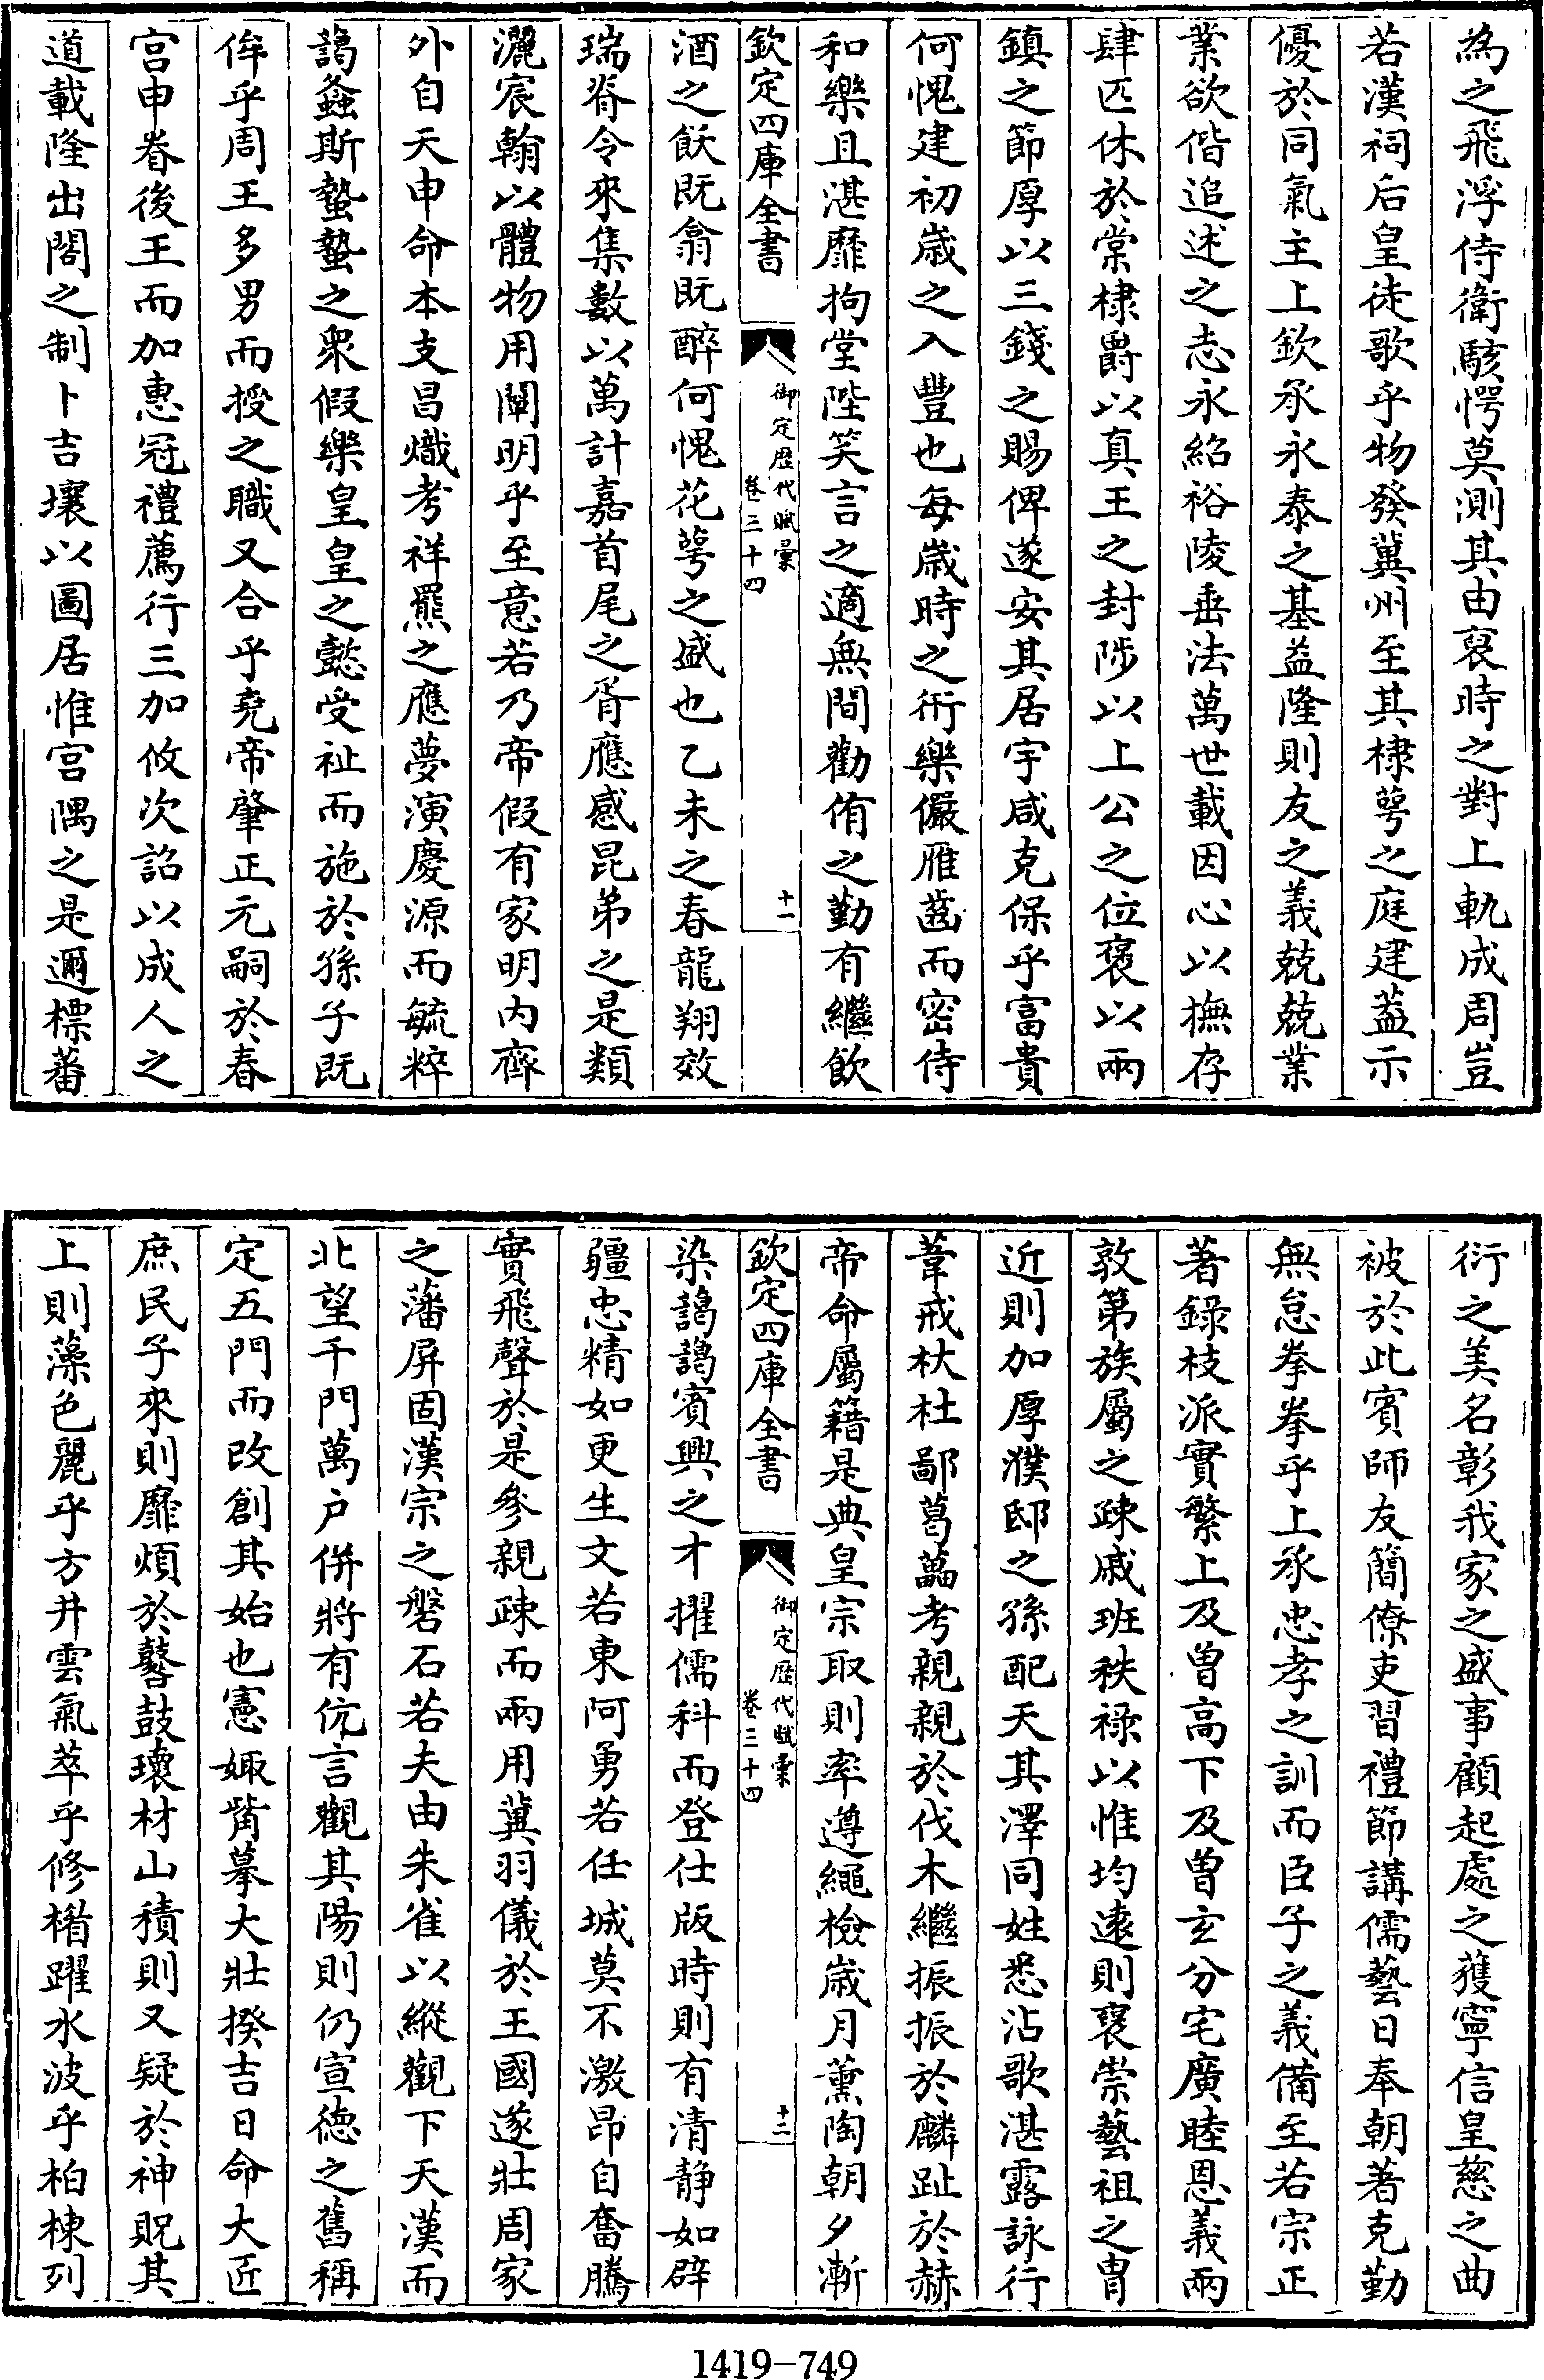 為之飛浮侍衛駭愕莫測其由裒時之對上軌成周豈
若漢祠后皇徒歌乎物發冀州至其棣萼之庭建葢示
優於同氣主上欽承永泰之基益隆則友之義兢兢業
業欲偕追述之志永紹裕陵垂法萬世載因心以撫存
肆匹休於棠棣爵以真王之封陟以上公之位褒以兩
鎮之節厚以三錢之賜俾遂安其居宇咸克保乎富貴
何愧建初歲之入豐也每歲時之衎樂儼雁齒而密侍
和樂且湛靡拘堂陛笑言之適無間勸侑之勤有繼飲
欽定四庫全書
御定歴代賦彙
卷三十四
十一
酒之飫既翕既醉何愧花萼之盛也乙未之春龍翔效
瑞脊令來集數以萬計嘉首尾之胥應感昆弟之是類
灑宸翰以體物用闡明乎至意若乃帝假有家明内齊
外自天申命本支昌熾考祥羆之應夢演慶源而毓粹
譪螽斯蟄蟄之衆假樂皇皇之懿受祉而施於孫子既
侔乎周王多男而授之職又合乎堯帝肇正元嗣於春
宫申眷後王而加惠冠禮薦行三加攸次詔以成人之
道載隆出閤之制卜吉壤以圖居惟宫隅之是邇標蕃
衍之美名彰我家之盛事顧起處之獲寧信皇慈之曲
被於此賓師友簡僚吏習禮節講儒藝日奉朝著克勤
無怠拳拳乎上承忠孝之訓而臣子之義備至若宗正
著錄枝派實繁上及曽高下及曽玄分宅廣睦恩義兩
敦第族屬之疎戚班秩禄以惟均遠則褒崇藝祖之胄
近則加厚濮邸之孫配天其澤同姓悉沾歌湛露詠行
葦戒杕杜鄙葛藟考親親於伐木繼振振於麟趾於赫
帝命屬籍是典皇宗取則率遵繩檢歲月薰陶朝夕漸
欽定四庫全書
御定歴代賦彙
卷三十四
十二
染譪譪賓興之才擢儒科而登仕版時則有清静如辟
疆忠精如更生文若東阿勇若任城莫不激昂自奮騰
實飛聲於是參親疎而兩用冀羽儀於王國遂壯周家
之藩屏固漢宗之磐石若夫由朱雀以縱觀下天漢而
北望千門萬户併將有伉言觀其陽則仍宣徳之舊稱
定五門而改創其始也憲娵訾摹大壯揆吉日命大匠
庶民子來則靡煩於鼛鼓瓌材山積則又疑於神貺其
上則藻色麗乎方井雲氣萃乎修楣躍水波乎柏棟列
1419-749